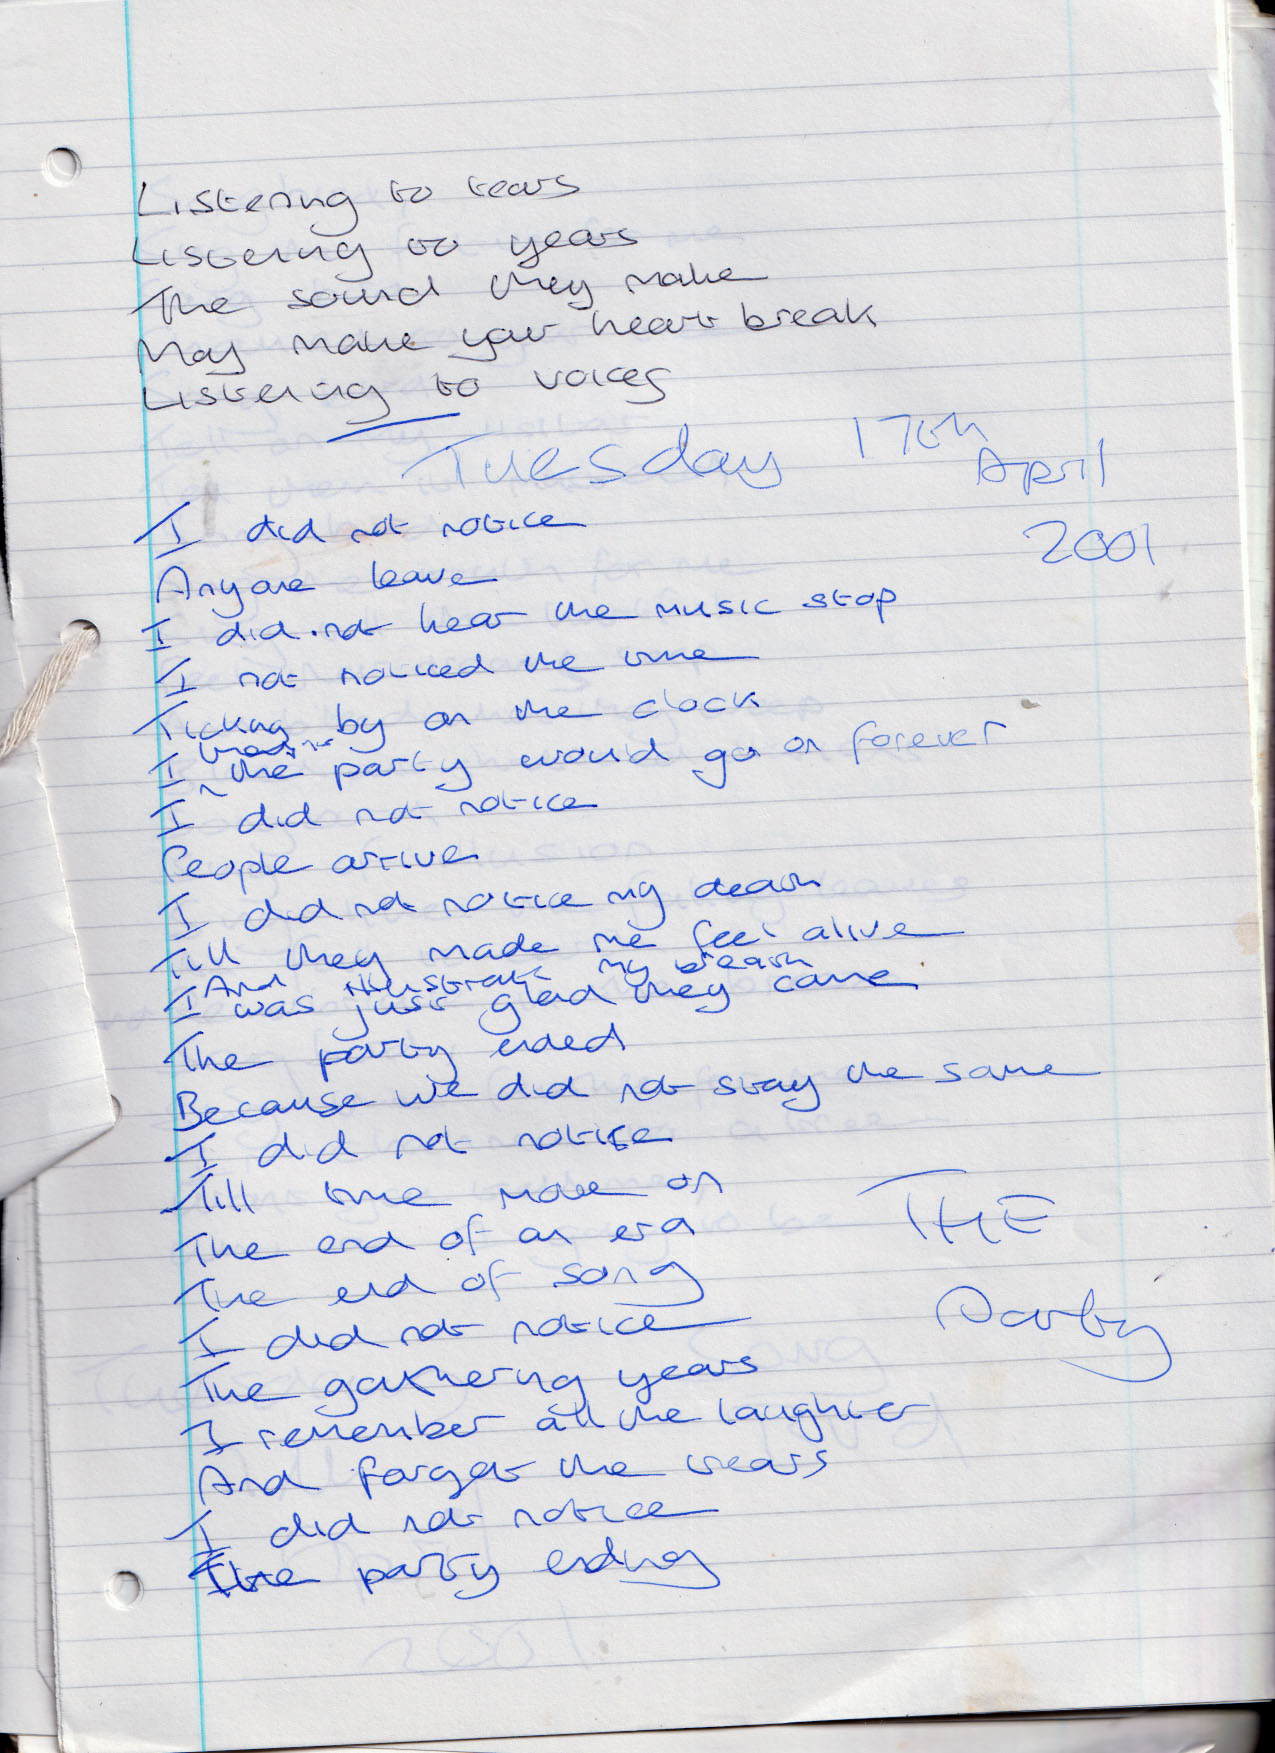 Listening to tears
Listening to years
The sound they make
May make your heart break
Listening to voices
Tuesday 17th
April
2001
I did not notice
Anyone leave
I did not hear the music stop
I not noticed the time
Ticking by on the clock
I the party would go on forever
I did not notice
People arrive
I did not notice my death
Till they made me feel alive
And my breath
I was just glad they came
The party ended
Because we did not stay the same
I did not notice
Till time move on
The end of an era
The end of song
THE
Party
I did not notice
The gathering years
I remember all the laughter
And forget the tears
I did not notice
The party ending